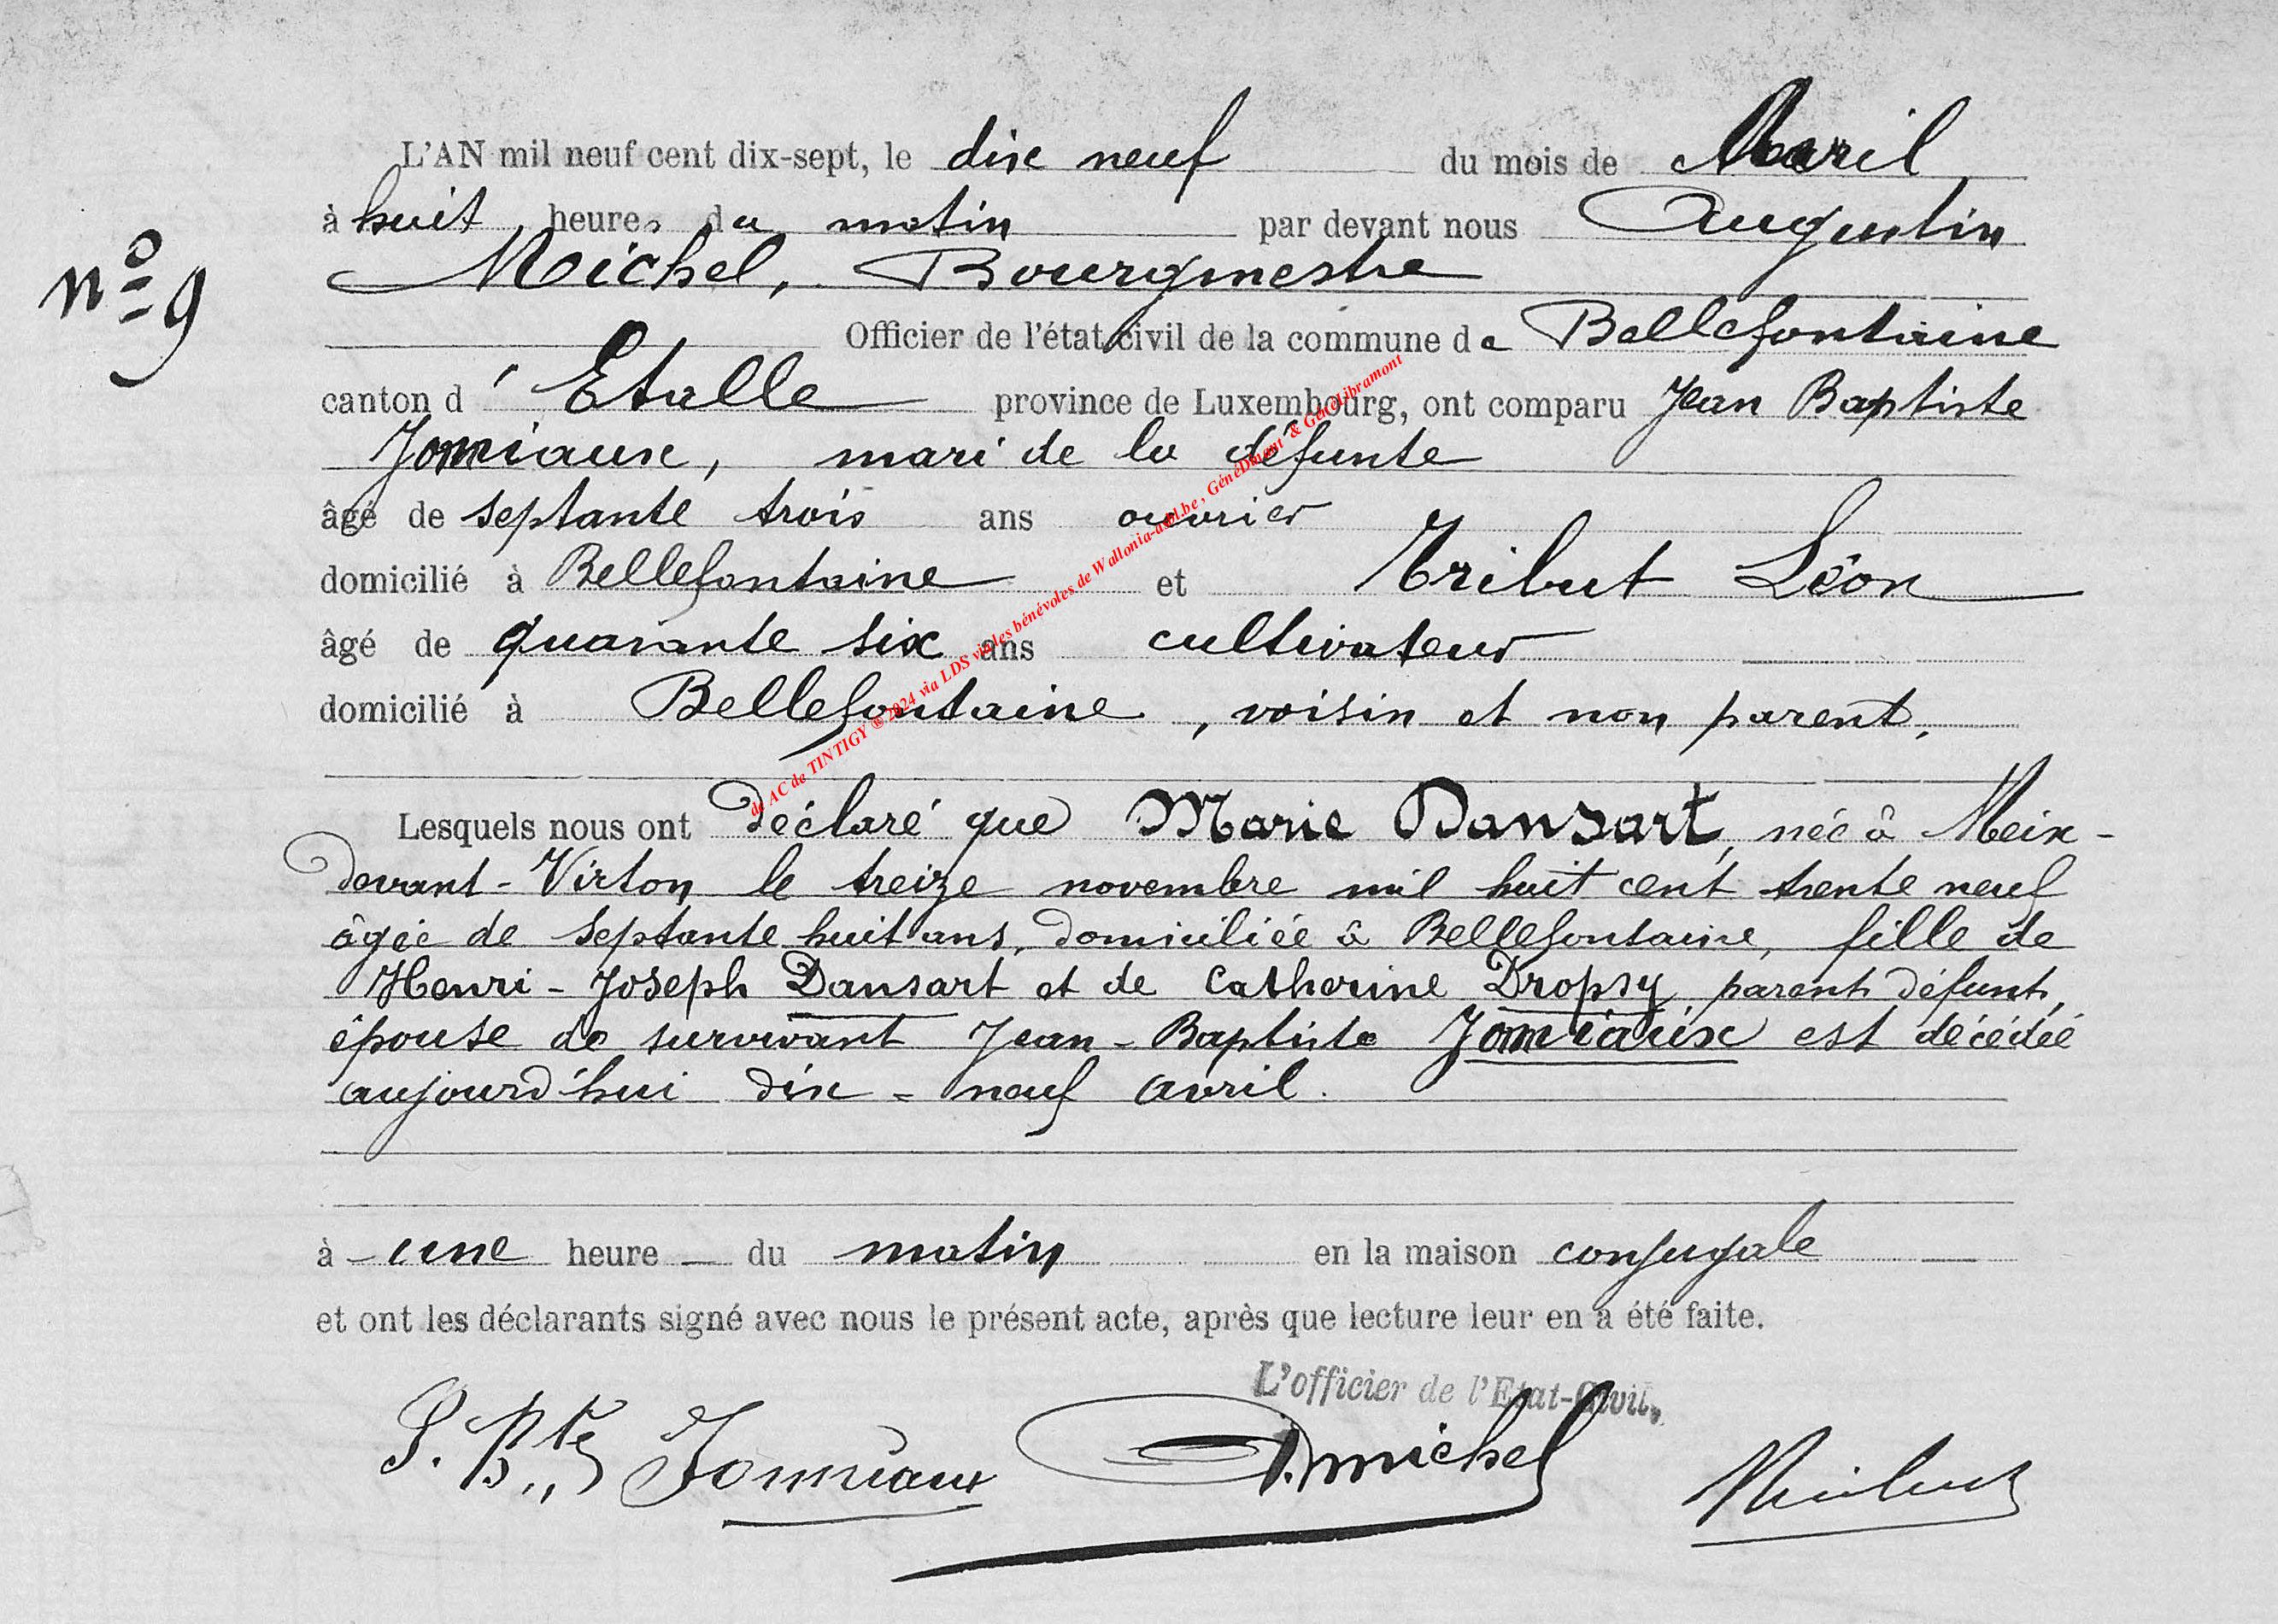 L'AN mil neuf cent dix-sept, le dix neuf du mois de Avril
à huit heures du matin par devant nous Augustin
Michel, Bourgmestre
n° 9
Officier de l'état civil de la commune de Bellefontaine
canton d'Etalle province de Luxembourg, ont comparu Jean Baptiste
Jomiaux, mari de la défunte
âgé de septante trois ans ouvrier
domicilié à Bellefontaine et Tribut Léon
âgé de quarante six ans cultivateur
domicilié à Bellefontaine, voisin et non parent,
de AC de TINTIGY ® 2024 via LDS via les bénévoles de Wallonia-asbl.be, GénéDinant & GénéLibramont
Lesquels nous ont déclaré que Marie Dansart, née à Meix-
devant-Virton le treize novembre mil huit cent trente neuf
âgée de septante huit ans, domiciliée à Bellefontaine, fille de
Henri-Joseph Dansart et de Catherine Dropsy parents défunts,
épouse de survivant Jean-Baptiste Jomiaux est décédée
aujourd'hui dix-neuf avril.
à une heure du matin en la maison conjugale
et ont les déclarants signé avec nous le présent acte, après que lecture leur en a été faite.
L'officier de l'Etat-Civil,
J. Bte Jomiaux Amichel